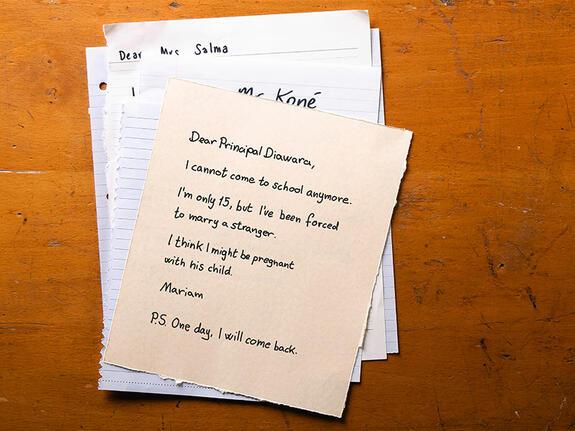 Dear Mrs Salma
Mr Koné
Dear Principal Diawara,
I cannot come to school anymore.
I'm only 15, but I've been forced
to marry a stranger.
I think I might be pregnant
with his child.
Mariam
P.S. One day, I will come back.